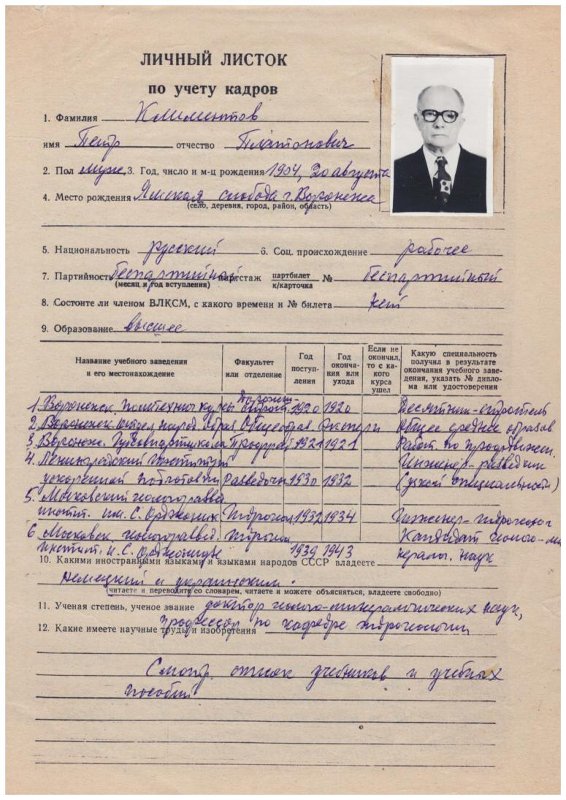 ЛИЧНЫЙ ЛИСТОК
по учету кадров
1. Фамилия Климентов
имя Петр отчество Платонович
2. Пол муж. 3. Год, число и м-ц рождения 1904, 20 августа
4. Место рождения Ямская слобода г. Воронежа
(село, деревня, город, район, область)
5. Национальность русский 6. Соц. происхождение рабочее
7. Партийность беспартийный партстаж партбилет к/карточка № беспартийный
(месяц и год вступления)
8. Состоите ли членом ВЛКСМ, с какого времени и № билета нет
9. Образование высшее
Название учебного заведения и его местонахождение
Факультет или отделение
Год поступления
Год окончания или ухода
Если не окончил, то с какого курса ушел
Какую специальность получил в результате окончания учебного заведения, указать № диплома или удостоверения
1 Воронежск. политехн. курсы 1920 1920 Десятник-строитель
2 народ. образ. общее среднее образов.
3 Воронеж. 1921 1921 Работ. по
4 Ленинградский институт Инженер-разведчик
ускоренной подготовки Разведочн. 1930 1932 (узкой специальности)
5 Московский геологоразв.
инстит. им. С. Орджоник. Гидрогеол. 1932 1934 Инженер-гидрогеолог
6 Московск. геологоразвед. Гидрогеол. Кандидат геолого-ми-
инстит. и. С. Орджоникидзе 1939 1943 нералог. наук
10. Какими иностранными языками и языками народов СССР владеете
Немецкий и украинский.
(читаете и переводите со словарем, читаете и можете объясняться, владеете свободно)
11. Ученая степень, ученое звание доктор геолого-минералогических наук,
профессор по кафедре гидрогеологии
12. Какие имеете научные труды и изобретения
Смотр. список учебников и учебных
пособий